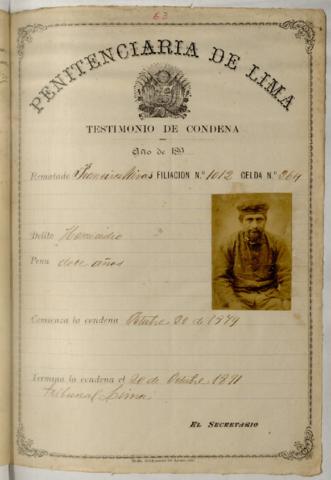 63
PENITENCIARIA DE LIMA
TESTIMONIO DE CONDENA
Año de 189
Rematado Francisco Rivas FILIACION N.º 1012 CELDA N.º 264
Delito Homicidio
Pena doce años
Comienza la condena Octubre 20 de 1879
Termina la condena el 20 de Octubre 1891
Tribunal Lima
EL SECRETARIO